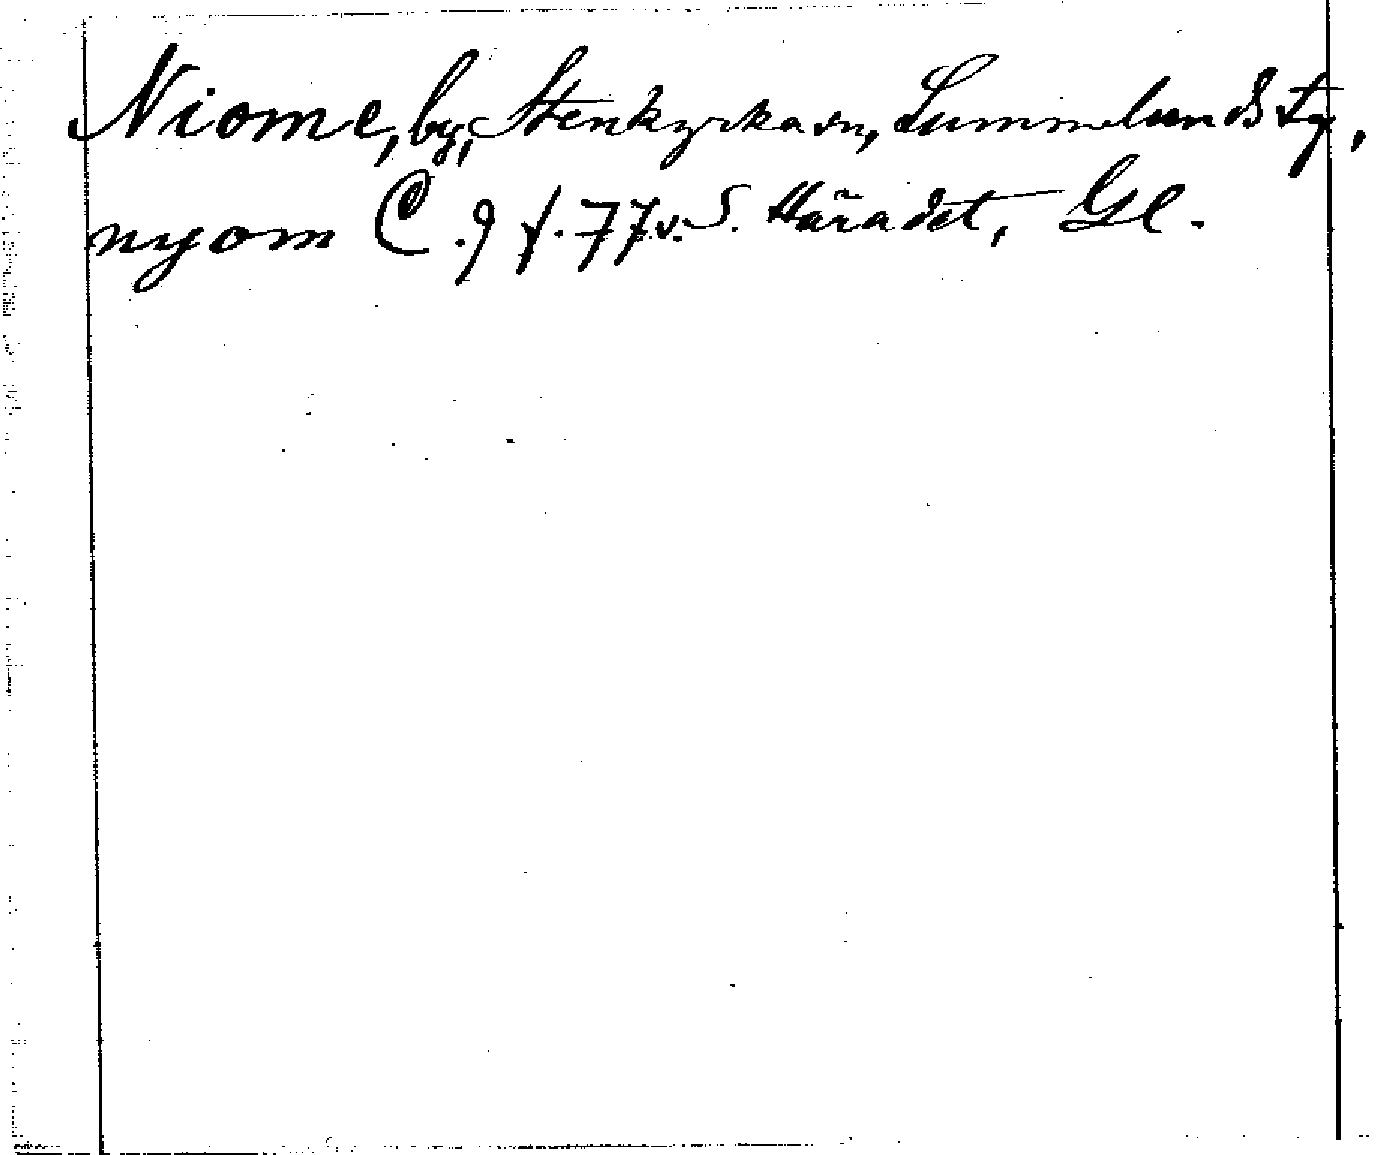 Niome, by, Stenkyrka sn, Lummelunds tg,
nyom C.9 f. 77.v. S. Häradet, Gl.